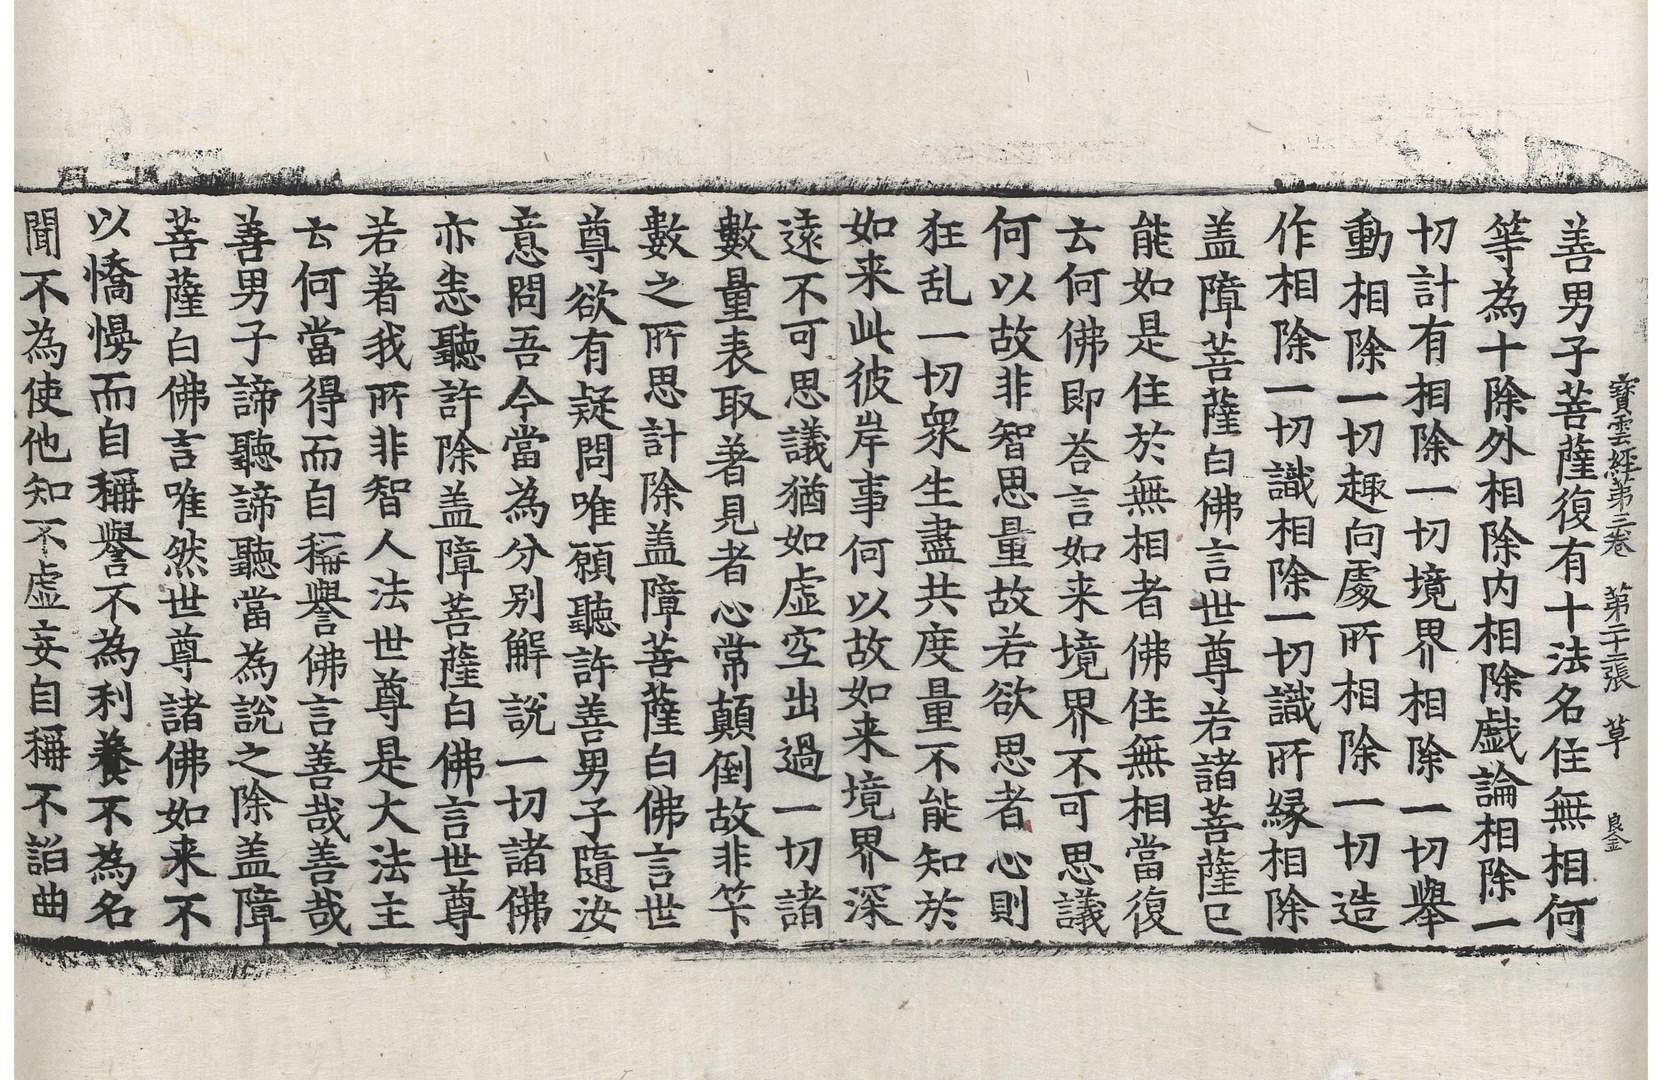 寶雲經第三卷　第二十二張　草　良金
善男子菩薩復有十法名住無相何
等為十除外相除内相除戱論相除一
切計有相除一切境界相除一切舉
動相除一切趣向䖏所相除一切造
作相除一切識相除一切識所緣相除
盖障菩薩白佛言世尊若諸菩薩已
能如是住於無相者佛住無相當復
云何佛即荅言如来境界不可思議
何以故非智思量故若欲思者心則
狂乱一切衆生盡共度量不能知於
如来此彼岸事何以故如来境界深
遠不可思議猶如虛空出過一切諸
數量表取著見者心常顛倒故非筭
數之所思計除盖障菩薩白佛言世
尊欲有疑問唯願聽許善男子隨汝
意問吾今當為分别解説一切諸佛
亦恚聽許除盖障菩薩白佛言世尊
若著我所非智人法世尊是大法主
云何當得而自稱譽佛言善哉善哉
善男子諦聽諦聽當為說之除盖障
菩薩白佛言唯然世尊諸佛如来不
以憍慢而自稱譽不為利養不為名
聞不為使他知不虛妄自稱不諂曲